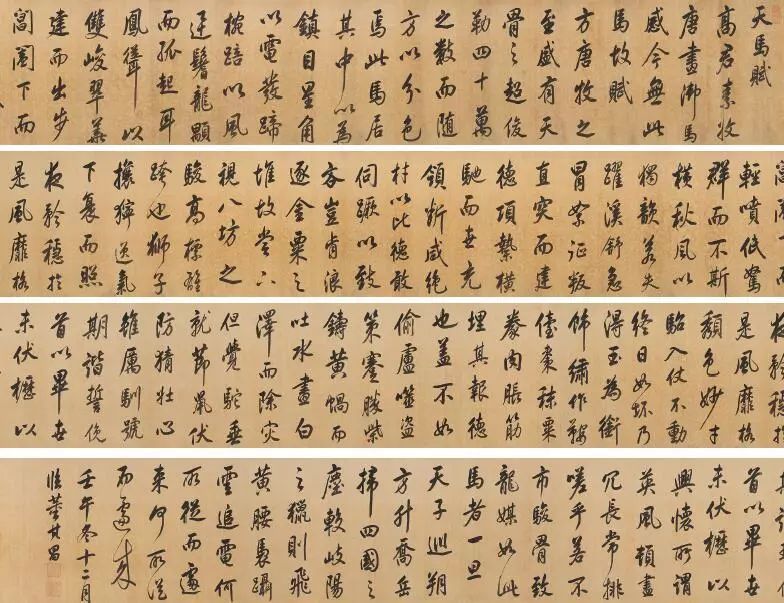 天馬賦
高君素收
唐畫沛馬
感今無此
馬故賦
方唐牧之
至盛有天
骨之超俊
勒四十萬
之數而隨
方以分色
焉此馬居
其中以為
鎮目星角
以電發蹄
椀踣以風
迅鬐龍顒
而孤起耳
鳳聳以
雙峻翠華
建而出步
閶闔下而
閶闔下而
輕噴低駑
群而不斯
橫秋風以
獨韻若失
躍溪舒急
冒絮征叛
直突而建
德項縶橫
馳而世充
領斷咸絶
材以比德敢
伺蹶以致
吝豈肯浪
逐金粟之
堆故當下
視八坊之
駿高標雄
跨也獅子
攘獰逸氣
下衰而照
夜矜穩於
是風靡格
夜矜穩於
是風靡格
頹色妙才
駘入仗不動
終日如坏乃
得玉為銜
飾繡作鞍
棗秣粟
豢肉脹筋
埋其報德
也蓋不如
偷盧噬盜
策蹇勝紫
鑄黃蝸而
吐水畫白
澤而除灾
但覺駝垂
就節鼠伏
防猜壯心
雖厲馴號
期諧誓俛
首以畢世
未伏櫪以
首以畢世
未伏櫪以
興懷所謂
英風頓盡
冗長常排
嗟乎若不
市駿骨致
龍媒如此
馬者一旦
天子巡朔
方升喬岳
掃四國之
塵較岐陽
之獵則飛
黃腰褭躡
雲追電何
所從而遽
來何所從
而遽來
壬午冬十二月
臨董其昌